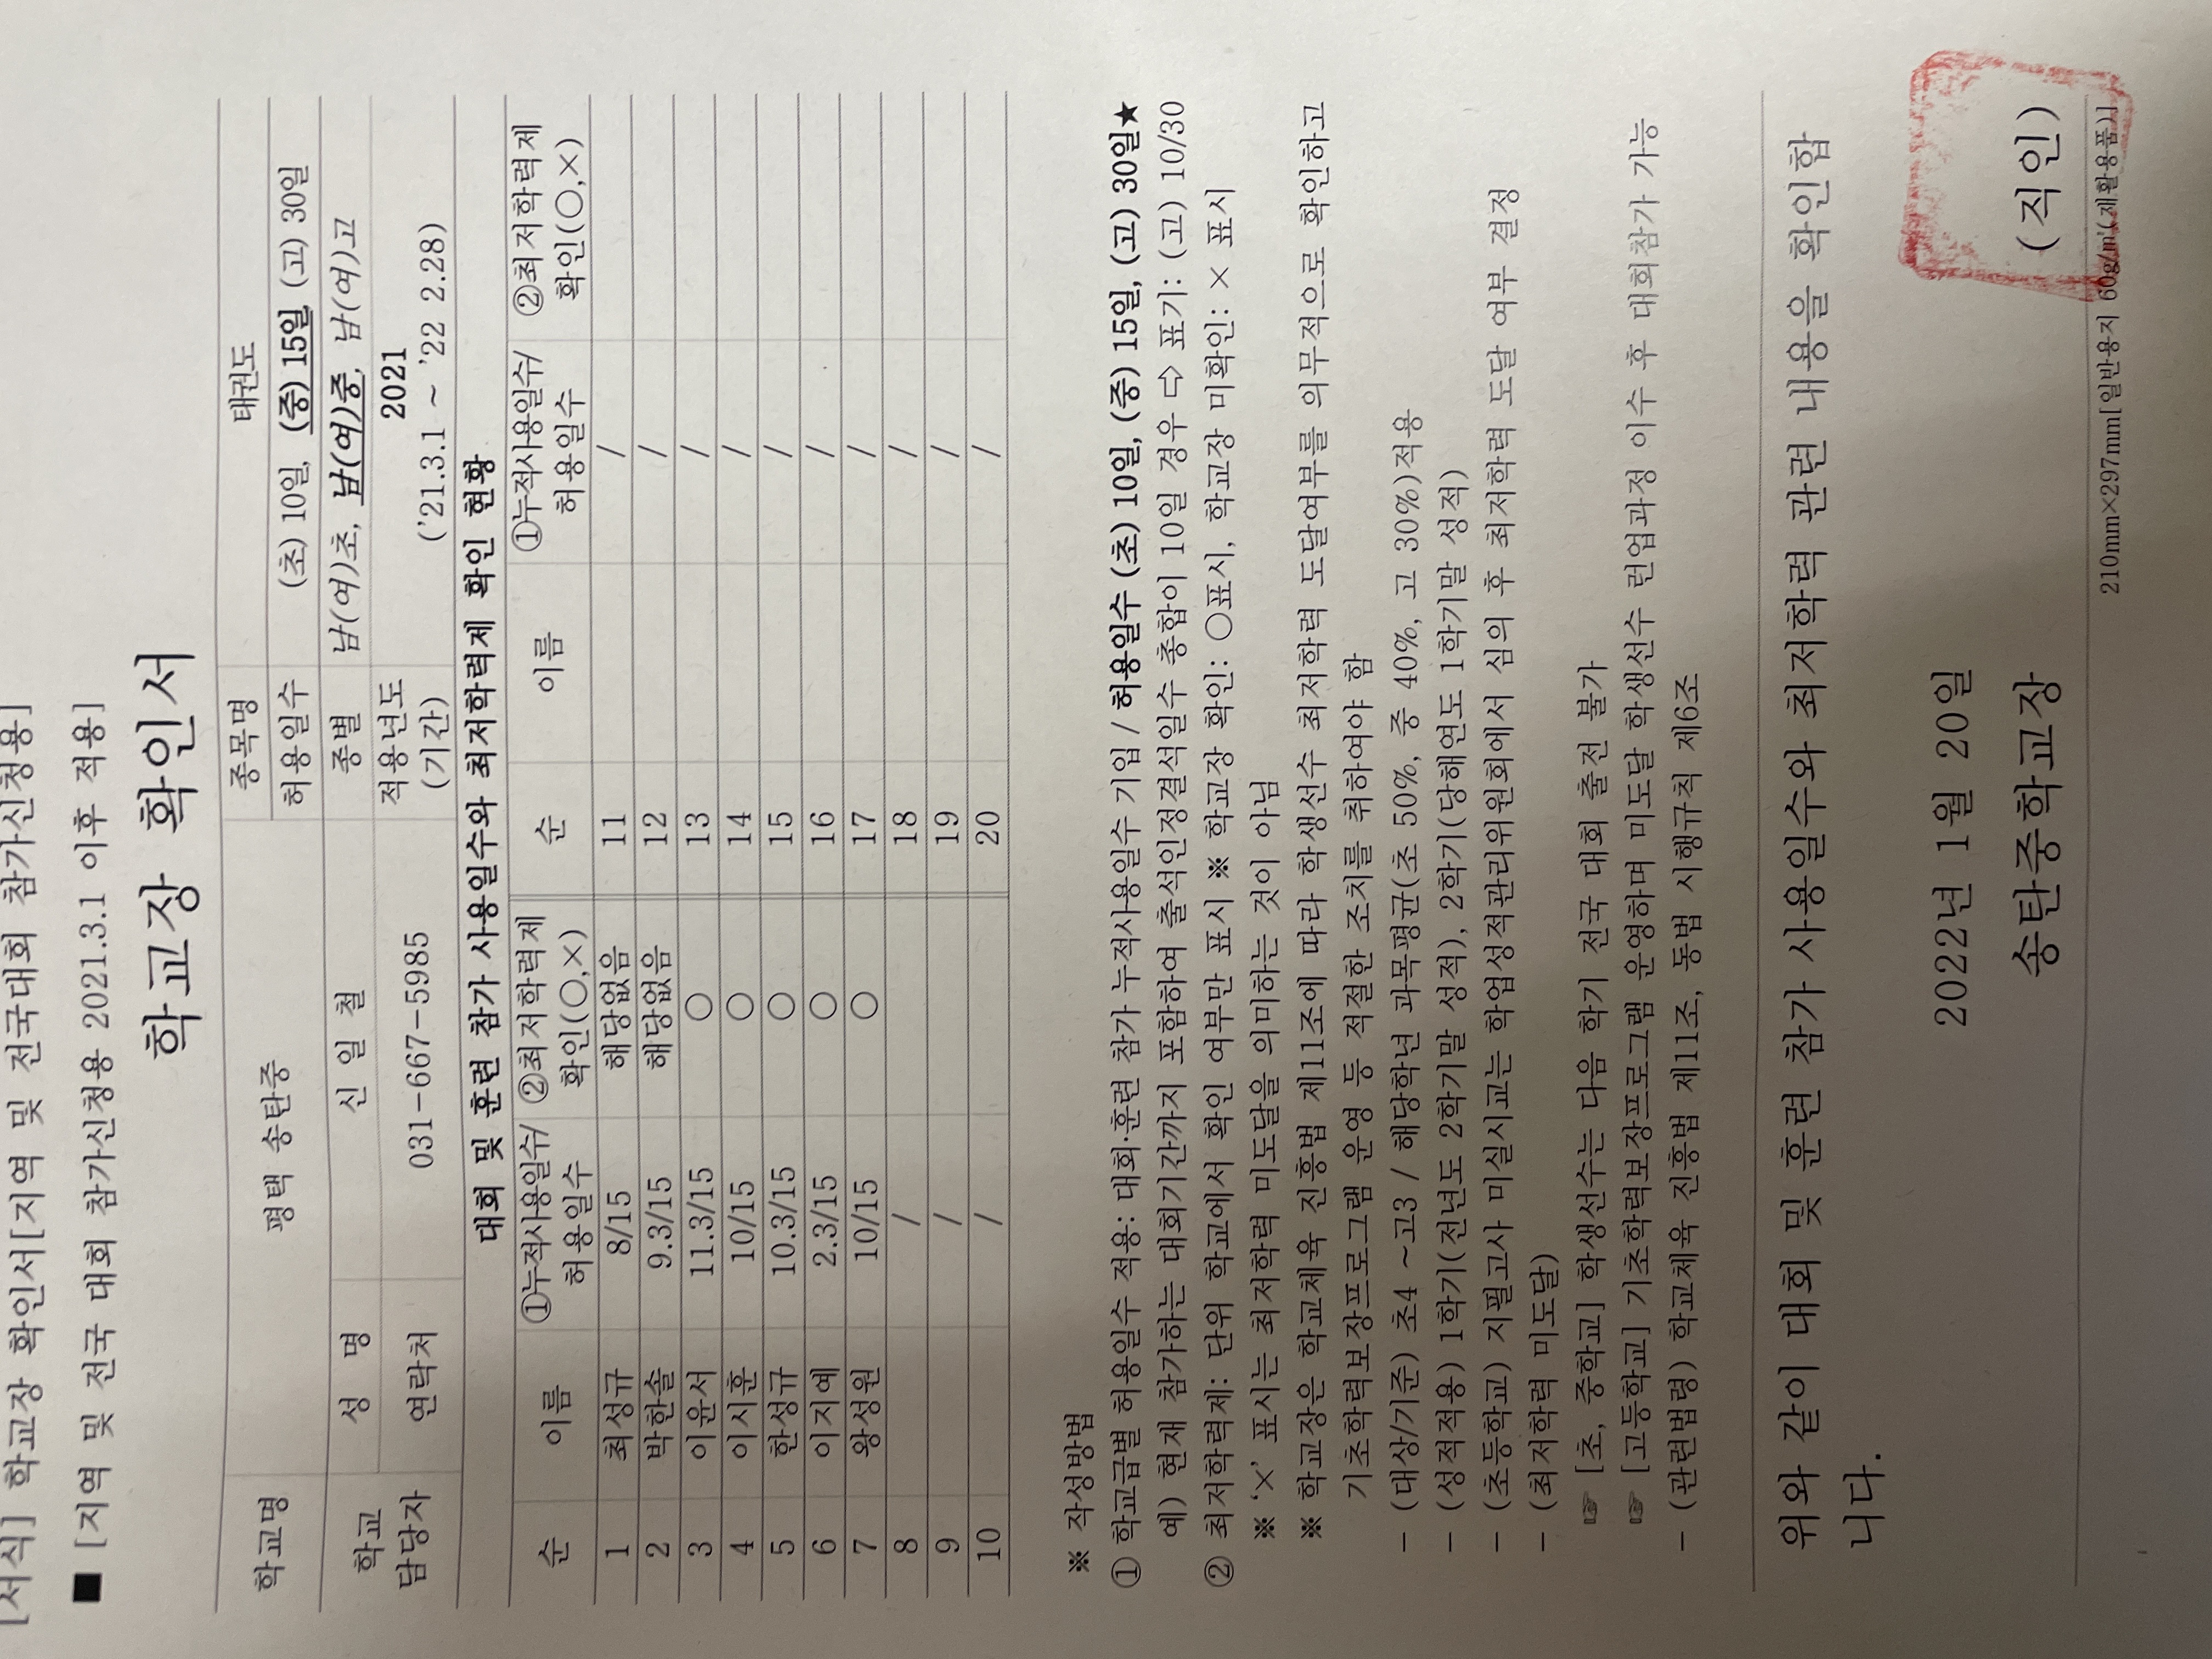 [서식] 학교장 확인서[지역 및 전국대회 참가신청용]
■ [지역 및 전국 대회 참가신청용 2021.3.1 이후 적용]
학교장 확인서
학교명 평택 송탄중 종목명 태권도
허용일수 (초) 10일, (중) 15일, (고) 30일
학교 담당자 성 명 신 일 철 종별 남(여)초, 남(여)중, 남(여)고
연락처 031-667-5985 적용년도 (기간) 2021 ('21.3.1 ~ '22 2.28)
대회 및 훈련 참가 사용일수와 최저학력제 확인 현황
순 이름 ①누적사용일수/ 허용일수 ②최저학력제 확인(○,×) 순 이름 ①누적사용일수/ 허용일수 ②최저학력제 확인(○,×)
1 최성규 8/15 해당없음 11 /
2 박한솔 9.3/15 해당없음 12 /
3 이윤서 11.3/15 ○ 13 /
4 이시훈 10/15 ○ 14 /
5 한성규 10.3/15 ○ 15 /
6 이지예 2.3/15 ○ 16 /
7 왕성원 10/15 ○ 17 /
8 / 18 /
9 / 19 /
10 / 20 /
※ 작성방법
① 학교급별 허용일수 적용: 대회·훈련 참가 누적사용일수 기입 / 허용일수 (초) 10일, (중) 15일, (고) 30일★
예) 현재 참가하는 대회기간까지 포함하여 출석인정결석일수 총합이 10일 경우 ➪ 표기: (고) 10/30
② 최저학력제: 단위 학교에서 확인 여부만 표시 ※ 학교장 확인: ○표시, 학교장 미확인: × 표시
※ '×' 표시는 최저학력 미도달을 의미하는 것이 아님
※ 학교장은 학교체육 진흥법 제11조에 따라 학생선수 최저학력 도달여부를 의무적으로 확인하고
기초학력보장프로그램 운영 등 적절한 조치를 취하여야 함
- (대상/기준) 초4 ~고3 / 해당학년 과목평균(초 50%, 중 40%, 고 30%)적용
- (성적적용) 1학기(전년도 2학기말 성적), 2학기(당해연도 1학기말 성적)
- (초등학교) 지필고사 미실시교는 학업성적관리위원회에서 심의 후 최저학력 도달 여부 결정
- (최저학력 미도달)
☞ [초, 중학교] 학생선수는 다음 학기 전국 대회 출전 불가
☞ [고등학교] 기초학력보장프로그램 운영하며 미도달 학생선수 런업과정 이수 후 대회참가 가능
- (관련법령) 학교체육 진흥법 제11조, 동법 시행규칙 제6조
위와 같이 대회 및 훈련 참가 사용일수와 최저학력 관련 내용을 확인합
니다.
2022년 1월 20일
송탄중학교장 (직인)
210mm×297mm[일반용지 60g/㎡(재활용품)]